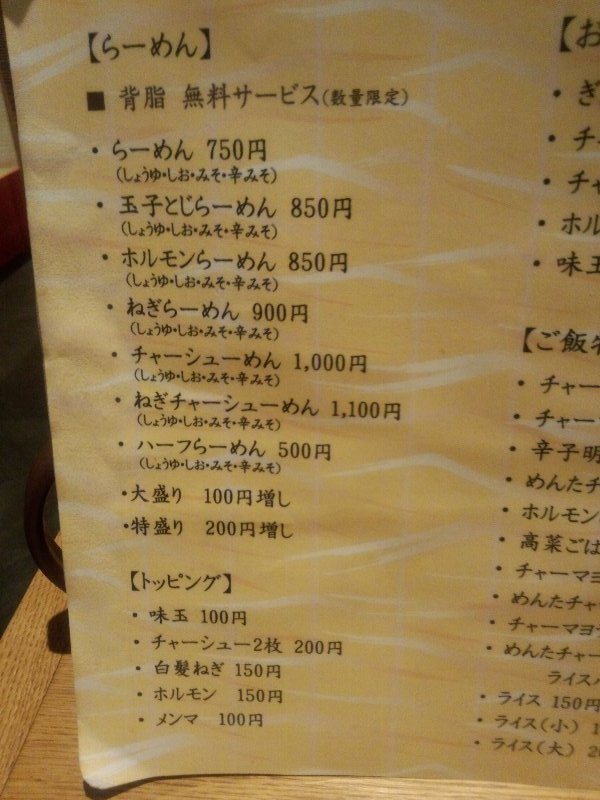 【らーめん】
■ 背脂 無料サービス(数量限定)
・らーめん 750円
(しょうゆ・しお・みそ・辛みそ)
・玉子とじらーめん 850円
(しょうゆ・しお・みそ・辛みそ)
・ホルモンらーめん 850円
(しょうゆ・しお・みそ・辛みそ)
・ねぎらーめん 900円
(しょうゆ・しお・みそ・辛みそ)
・チャーシューめん 1,000円
(しょうゆ・しお・みそ・辛みそ)
・ねぎチャーシューめん 1,100円
(しょうゆ・しお・みそ・辛みそ)
・ハーフらーめん 500円
(しょうゆ・しお・みそ・辛みそ)
・大盛り 100円増し
・特盛り 200円増し
【トッピング】
・味玉 100円
・チャーシュー2枚 200円
・白髪ねぎ 150円
・ホルモン 150円
・メンマ 100円
【お
・ぎ
・チ
・チャ
・ホル
・味玉
【ご飯
・チャー
・チャー
・辛子明
・めんたチ
・ホルモン
・高菜ごは
・チャーマヨ
・めんたチャ
・チャーマヨ
・めんたチャー
ライス
・ライス 150円
・ライス(小) 1
・ライス(大) 2